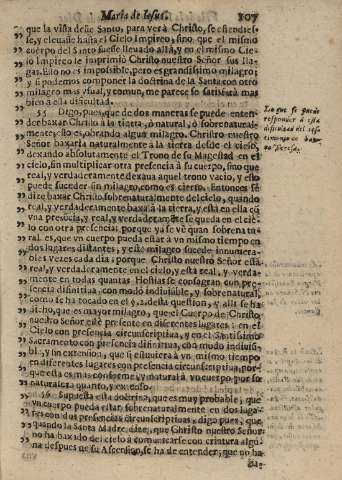 Maria de Iesus. 307
que la vista desse Santo, para verà Christo, se estendies-
se, y elevasse hasta el Cielo Impireo, sino que el mismo
cuerpo del Santo fuesse llevado allà, y en el mismo Cie-
lo Impireo le imprimiò Christo nuestro Señor sus lla-
gas. Ello no es impossible, pero es grandissimo milagro;
y si podemos componer la doctrina de la Santa con otro
milagro mas usual, y comun, me parece se satisfarà mas
bien à esta dificultad.
55 Digo, pues, que de dos maneras se puede enten-
der baxar Christo à la tierra, ò natural, ò sobre natural-
mente; esto es, obrando algun milagro. Christo nuestro
Señor baxaria naturalmente à la tierra desde el cielo,
dexando absolutamente el Trono de su Magestad en el
cielo, sin multiplicar otra presencia à su cuerpo, sino que
real, y verdaderamente dexaua aquel trono vacio, y esto
puede suceder sin milagro, como es cierto. Entonces se
dize baxar Christo sobrenaturalmente del cielo, quando
real, y verdaderamente baxa à la tierra, y està en ella cõ
vna presencia, y real, y verdaderamẽte se queda en el cie-
lo con otra presencia: porque ya se vè quan sobrena tu-
ral es, que vn cuerpo pueda estàr à vn mismo tiempo en
dos lugares distantes, y este milagro sucede innumera-
bles vezes cada dia; porque Christo nuestro Señor està
real, y verdaderamente en el cielo, y està real, y verda-
mente en todas quantas Hostias se consagran con pre-
sencia difinitiva, con modo indiuisible, y sobrenatural,
como se ha tocado en el §. 2. desta question, y alli se ha
dicho, que es mayor milagro, que el Cuerpo de Christo
nuestro Señor estè presente en diferentes lugares: en el
Cielo con presencia circunscriptiua, y en el Santissimo
Sacramento con presencia difinitiua, con modo indiuisi-
ble, y sin extension, que si estuuiera à vn mismo tiempo
en diferentes lugares con presencia circunscriptiua, por-
que esta es mas conforme, y natural à vn cuerpo por su
naturaleza quanto, y extenso.
56 Supuesta esta doctrina, que es muy probable, que
vn cuerpo pueda estar sobrenaturalmente en dos luga-
res con dos presencias circunscriptiuas, digo, pues, que
quando la Santa Madre dize, que Christo nuestro Señor
no ha baxado del cielo à comunicarse con criatura algu-
na despues de su Ascension, se ha de entender, que no ha
ba-
Lo que se puede
responder à esta
dificultad del